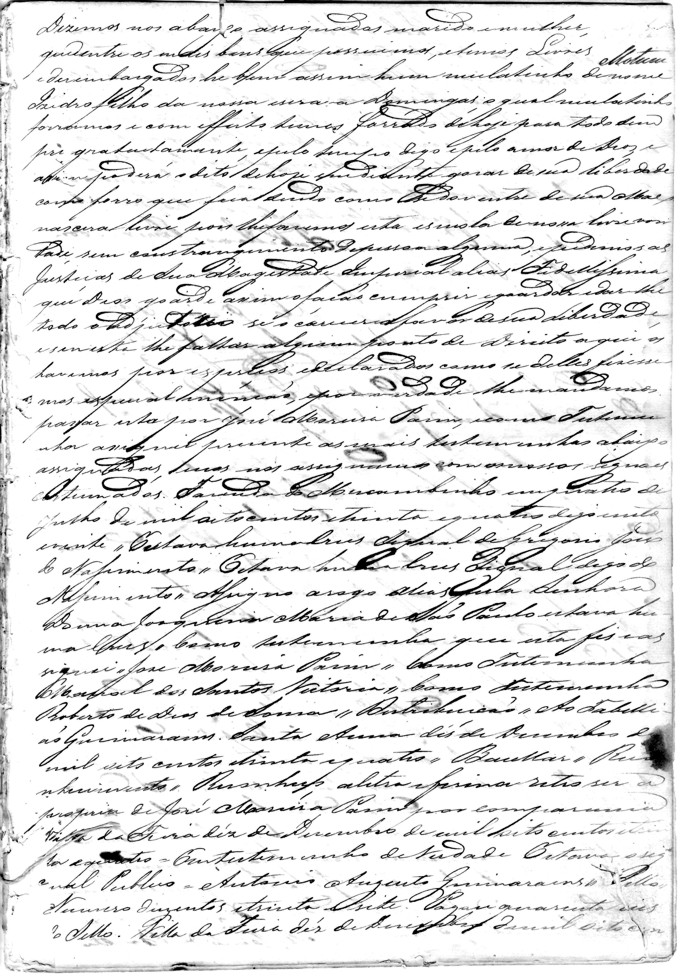 Dizemos nos abaixo assignados marido e mulher,
que entre os mais bens que possuimos, e temos Livres
e desembargados he bem assim hum mulatinho de nome
Izidro filho da nossa escrava Domingas, o qual mulatinho
forramos e com effeito temos forrado de hoje para todo sem
pre gratuitamente, e pelo tempo digo e pelo amor de Deos e
poderá o dito de hoje em diante gozar de sua liberdade
como forro que fica sendo como se do ventre de sua Mae
nascera livre pois lhe fazemos esta esmola de nossa livre von
tade sem constrangimento de pessoa alguma, e pedimos as
Justicas de Sua Magestade Imperial alias Fidellissima
que Deos guarde assim o facão cumprir e guardar e dar lhe
todo o adjutorio se o carecer a favor de sua liberdade,
e se neste lhe faltar algum ponto de Direito aqui os
havemos por expressos e declarados como se delles fizesse
mos especial menção, e por verdade lhe mandamos
passar esta por José Moreira Paim, e como Testemu
nha assignei presente as mais testemunhas abaixo
assignadas, e nos nos assignamos com os nossos signaes
costumados. Fazenda do Mucambinho em quatro de
Julho de mil oito centos e trinta e quatro digo
Estava huma Cruz Signal de Gregorio José
do Nascimento // Estava huma Cruz Signal digo do
Nascimento // Assigno a rogo alias pela Senhora
Dona Joaquina Maria de São Paulo estava hu
ma Cruz, Como testemunha que esta fiz e as
signei // José Moreira Paim // Como Testemunha
Manoel dos Santos Victoria // Como testemunha
Roberto de Deos de Soma // Distribuicão // Ao Tabelli
ão Guimaraens. Santa Anna déz de Dezembro de
mil oito centos e trinta e quatro // Bacellar // Reco
nhecimento // Reconheço a letra e firma retro ser a
propria de José Moreira Paim por comparação
Villa da Feira déz de Dezembro de mil oito centos e trin
ta e quatro = Em testemunho de Verdade Estava o sig
nal Publico = Antonio Augusto Guimaraens // Sello =
Numero duzentos e trinta e sete. Pagou quarenta reis
do Sello. Villa da Feira déz de Dezembro de mil oito cen